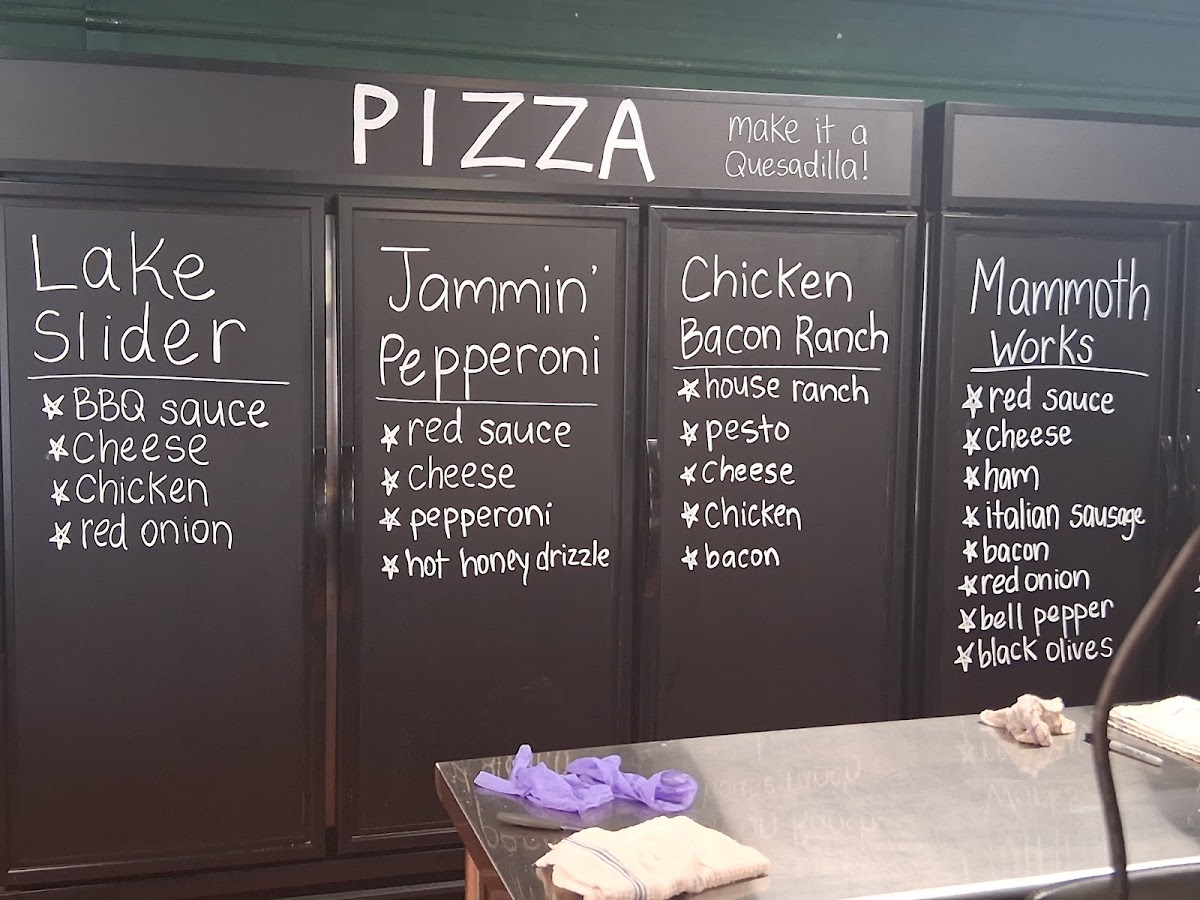 PIZZA
make it a
Quesadilla!
Lake
Slider
BBQ sauce
Cheese
Chicken
red onion
Jammin'
Pepperoni
red sauce
Cheese
pepperoni
hot honey drizzle
Chicken
Bacon Ranch
house ranch
pesto
Cheese
Chicken
bacon
Mammoth
Works
red sauce
Cheese
ham
italian sausage
bacon
red onion
bell pepper
black olives